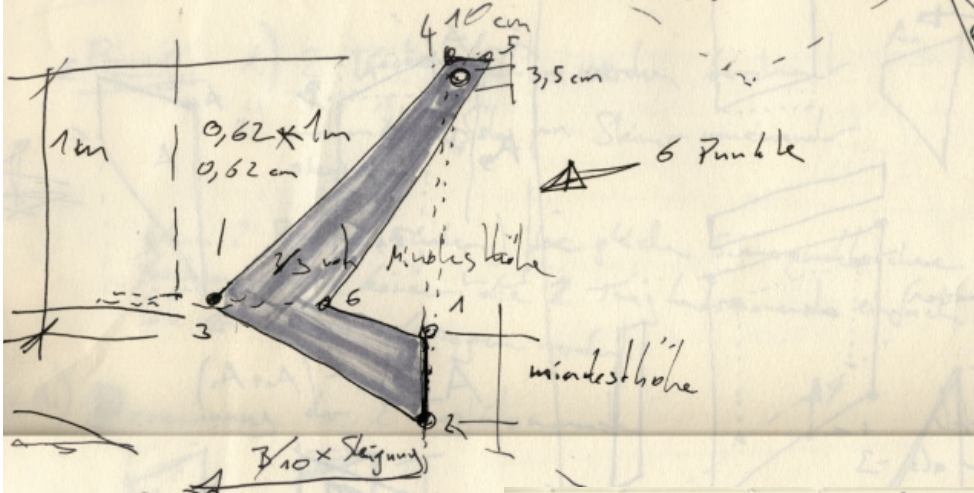 10 cm
4
5
3,5 cm
1m
0,62 × 1m
0,62 cm
6 Punkte
2/3 von Mindesthöhe
6
1
3
mindesthöhe
2
3/10 × Steigung